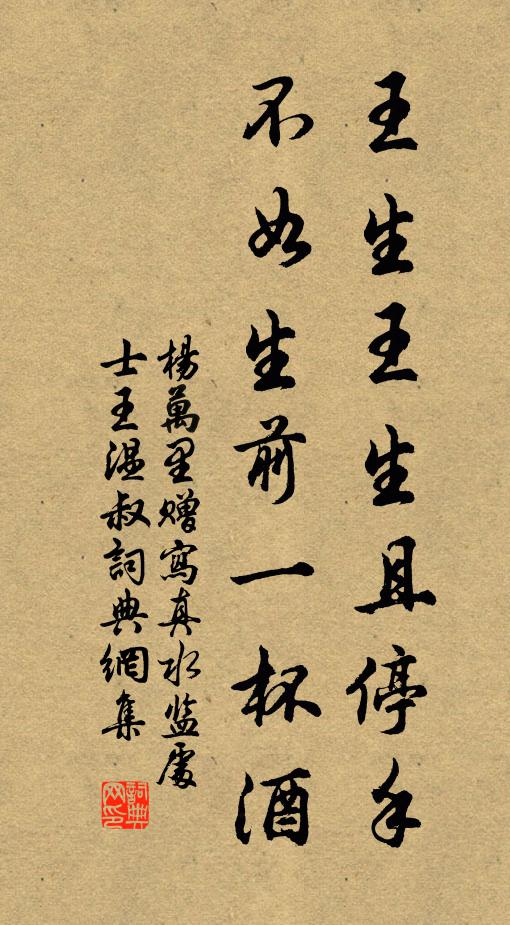 王生王生且停手
不如生前一杯酒
楊萬里贈寫真水监處
士王温叔詞典網集
詞典网印